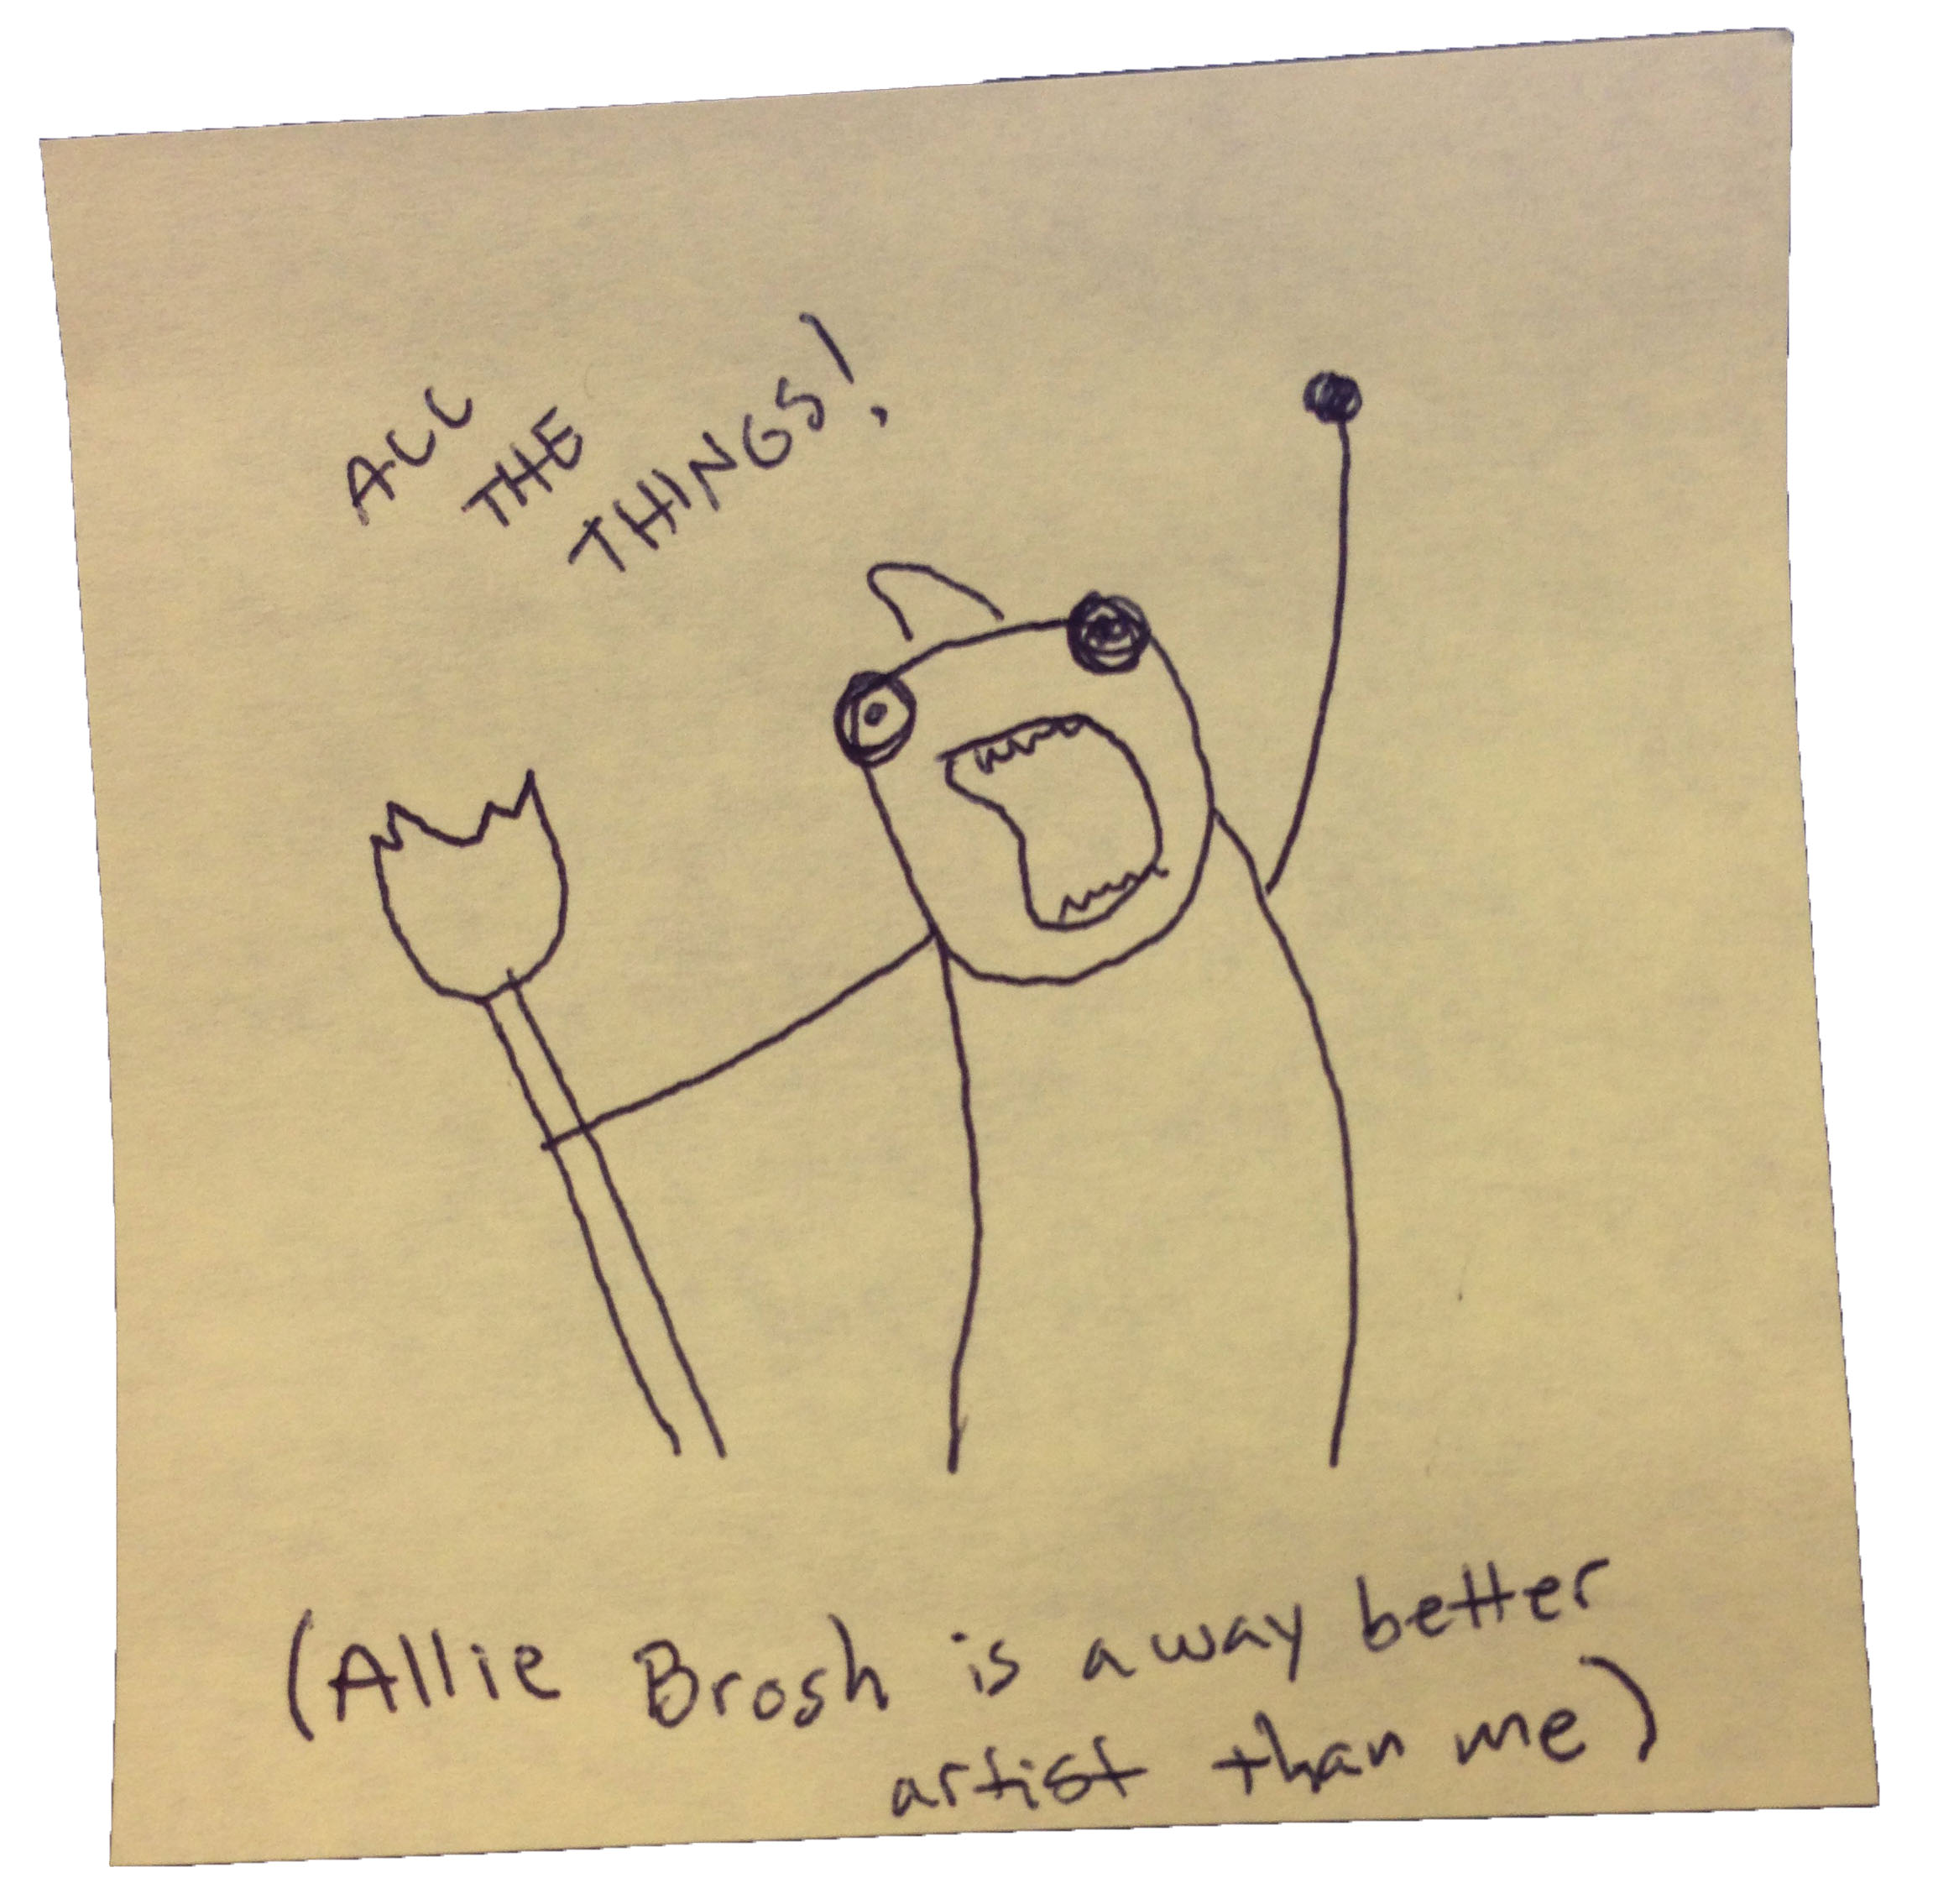 ALL
THE
THINGS!
(Allie Brosh is a way better
artist than me)